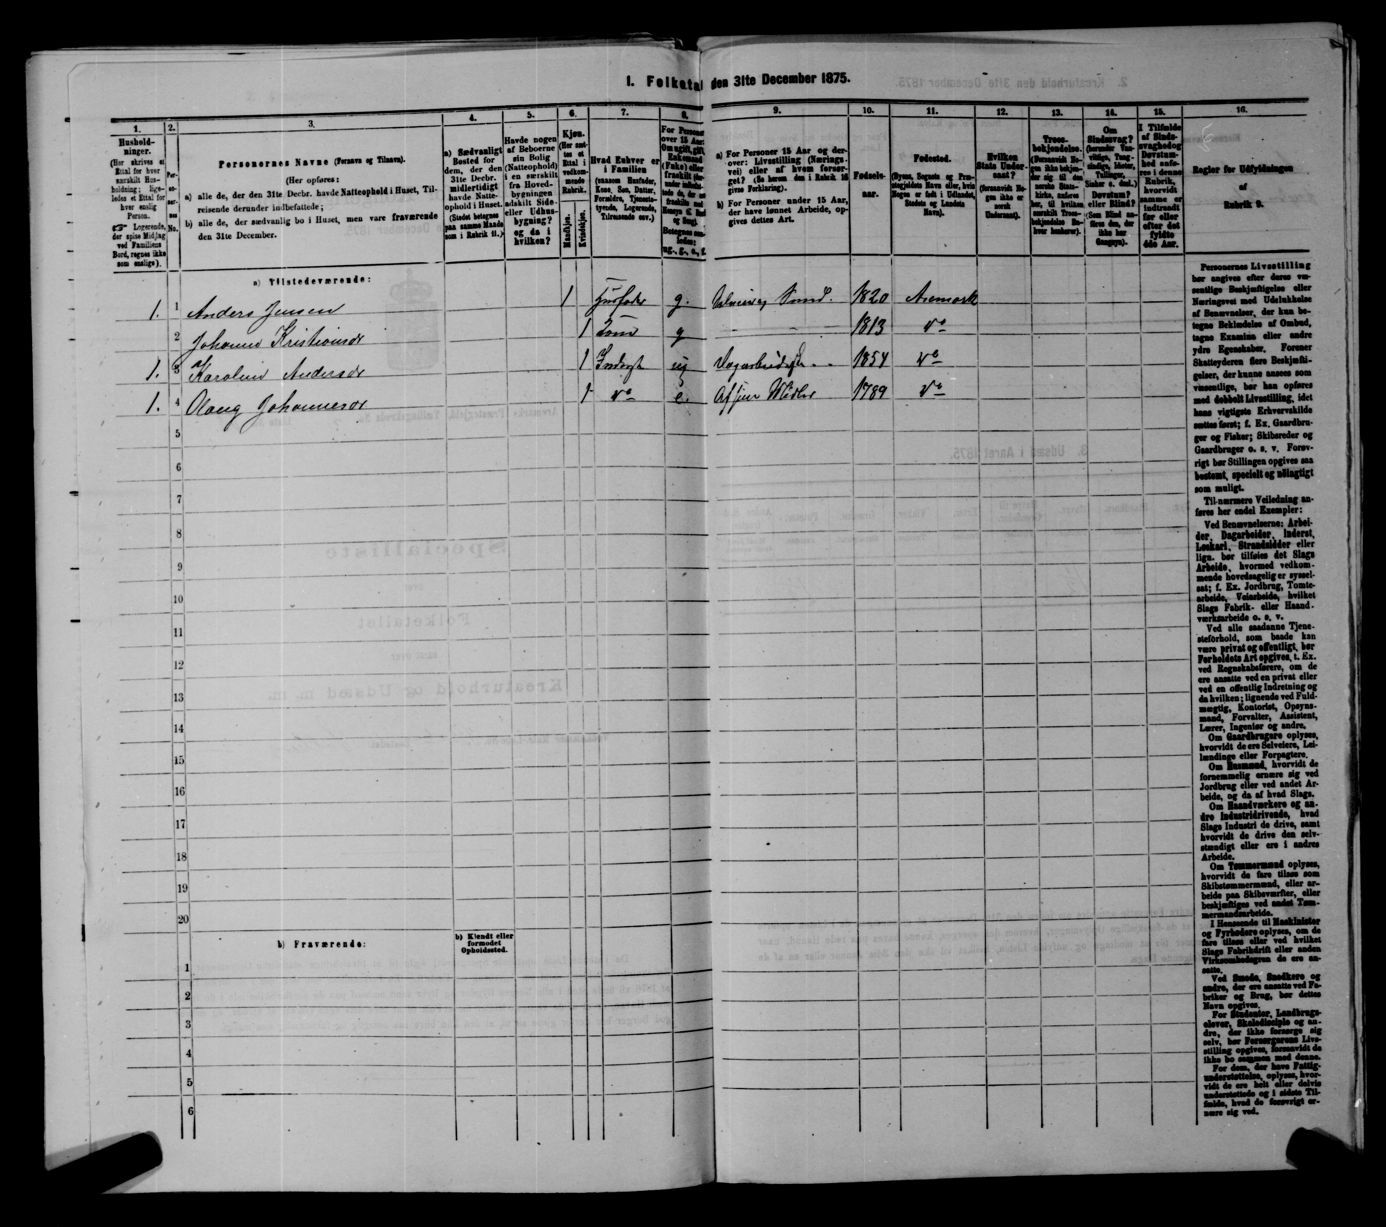 1. Folketal den 31te December 1875.
1.
2.
3.
4.
5.
6.
7.
8.
9.
10.
11.
12.
13.
14.
15.
16.
Hushold-
ninger.
(Her skrives et
Ettal for hver
særskilt Hus-
holdning; lige-
ledes et Ettal for
hver enslig
Person.
☞ Logerende,
der spise Middag
ved Familiens
Bord, regnes ikke
som enslige).
Personernes Navne (Fornavn og Tilnavn).
(Her opføres:
a) alle de, der den 31te Decbr. havde Natteophold i Huset, Til-
reisende derunder indbefattede;
b) alle de, der sædvanlig bo i Huset, men vare fraværende
den 31te December.
a) Sædvanligt
Bosted for
dem, der den
31te Decbr.
midlertidigt
havde Natte-
ophold i Huset.
(Stedet betegnes
paa samme Maade
som i Rubrik 11.)
Havde nogen
af Beboerne
sin Bolig
(Natteophold)
i en særskilt
fra Hoved-
bygningen
adskilt Side-
eller Udhus-
bygning?
og da i
hvilken?
Kjøn.
(Her sæt-
tes et
Ettal i
vedkom-
mende
Rubrik.
Mandkjøn.
Kvindekjøn.
Hvad Enhver er
i Familien
(saasom Husfader,
Kone, Søn, Datter,
Forældre, Tjeneste-
tyende, Logerende,
Tilreisende osv.)
a) For Personer 15 Aar og der-
over: Livsstilling (Nærings-
vei) eller af hvem forsør-
get? (Se herom den i Rubrik 16
givne Forklaring).
b) For Personer under 15 Aar,
der have lønnet Arbeide, op-
gives dettes Art.
Fødsels-
aar.
Fødested.
(Byens, Sognets og Præ-
stegjeldets Navn eller, hvis
Nogen er født i Udlandet,
Stedets og Landets
Navn).
Hvilken
Stats Under-
saat?
(forsaavidt No-
gen ikke er
norsk
Undersaat).
Troes-
bekjendelse.
(Forsaavidt No-
gen ikke bekjen-
der sig til den
norske Stats-
kirke, anføres
her, til hvilken
særskilt Troes-
bekjendelse En-
hver henhører).
Om
Sindssvag?
Døvstum?
eller Blind?
I Tilfælde
af Sinds-
svaghed og
Døvstum-
hed anfø-
res i denne
Rubrik,
hvorvidt
samme er
indtraadt
før eller
efter det
fyldte
4de Aar.
Regler for Udfyldningen
af
Rubrik 9.
a) Tilstedeværende:
1. 1 Anders Jensen 1 Husfader g. Selveier og 1820 Aremark
2 Johanne Kristiansdr 1 Kone g — — 1813 do
1. 3 Karoline Andersdr 1 ug 1854 do
1. 4 Olaug Johannesdr 1 do e. Af sine Midler 1789 do
5
6
7
8
9
10
11
12
13
14
15
16
17
18
19
20
b) Fraværende:
b) Kjendt eller
formodet
Opholdssted.
1
2
3
4
5
6
Personernes Livsstilling
bør angives efter deres væ-
sentlige Beskjæftigelse eller
Næringsvei med Udelukkelse
af Benævnelser, der kun be-
tegne Beklædelse af Ombud,
tagne Examina eller andre
ydre Egenskaber. Forener
Skatteyderen flere Beskjæfti-
gelser, der kunne ansees som
væsentlige, bør han opføres
med dobbelt Livsstilling, idet
hans vigtigste Erhvervskilde
sættes først; f. Ex. Gaardbru-
ger og Fisker; Skibsreder og
Gaardbruger o. s. v. Forøv-
rigt bør Stillingen opgives saa
bestemt, specielt og nøiagtigt
som muligt.
Til nærmere Veiledning an-
føres her endel Exempler:
Ved Benævnelserne: Arbei-
der, Dagarbeider, Inderst,
Løskarl, Strandsidder eller
lign. bør tilføies det Slags
Arbeide, hvormed vedkom-
mende hovedsagelig er syssel-
sat; f. Ex. Jordbrug, Tomte-
arbeide, Veiarbeide, hvilket
Slags Fabrik- eller Haand-
værksarbeide o. s. v.
Ved alle saadanne Tjene-
steforhold, som baade kan
være privat og offentligt, bør
Forholdets Art opgives, t. Ex.
ved Regnskabsførere, om de
ere ansatte ved en privat eller
ved en offentlig Indretning og
da hvilken; lignende ved Fuld-
mægtig, Kontorist, Opsyns-
mand, Forvalter, Assistent,
Lærer, Ingeniør og andre.
Om Gaardbrugere oplyses,
hvorvidt de ere Selveiere, Lei-
lændinge eller Forpagtere.
Om Husmænd, hvorvidt de
fornemmelig ernære sig ved
Jordbrug eller ved andet Ar-
beide, og da af hvad Slags.
Om Haandværkere og an-
dre Industridrivende, hvad
Slags Industri de drive, samt
hvorvidt de drive den selv-
stændigt eller ere i andres
Arbeide.
Om Tømmermænd oplyses,
hvorvidt de fare tilsøs som
Skibstømmermænd, eller ar-
beide paa Skibsværfter, eller
beskjæftiges ved andet Tøm-
mermandsarbeide.
I Henseende til Maskinister
og Fyrbødere oplyses, om de
fare tilsøs eller ved hvilket
Slags Fabrikdrift eller anden
Virksomhedsgren de ere an-
satte.
Ved Smede, Snedkere og
andre, der ere ansatte ved Fa-
briker og Brug, bør dettes
Navn opgives.
For Studenter, Landbrugs-
elever, Skoledisciple og an-
dre, der ikke forsørge sig
selv, bør Forsørgerens Livs-
stilling opgives, forsaavidt de
ikke bo sammen med denne.
For dem, der have Fattig-
understøttelse, oplyses, hvor-
vidt de ere helt eller delvis
understøttede og i sidste Til-
fælde, hvad de forøvrigt er-
nære sig ved.